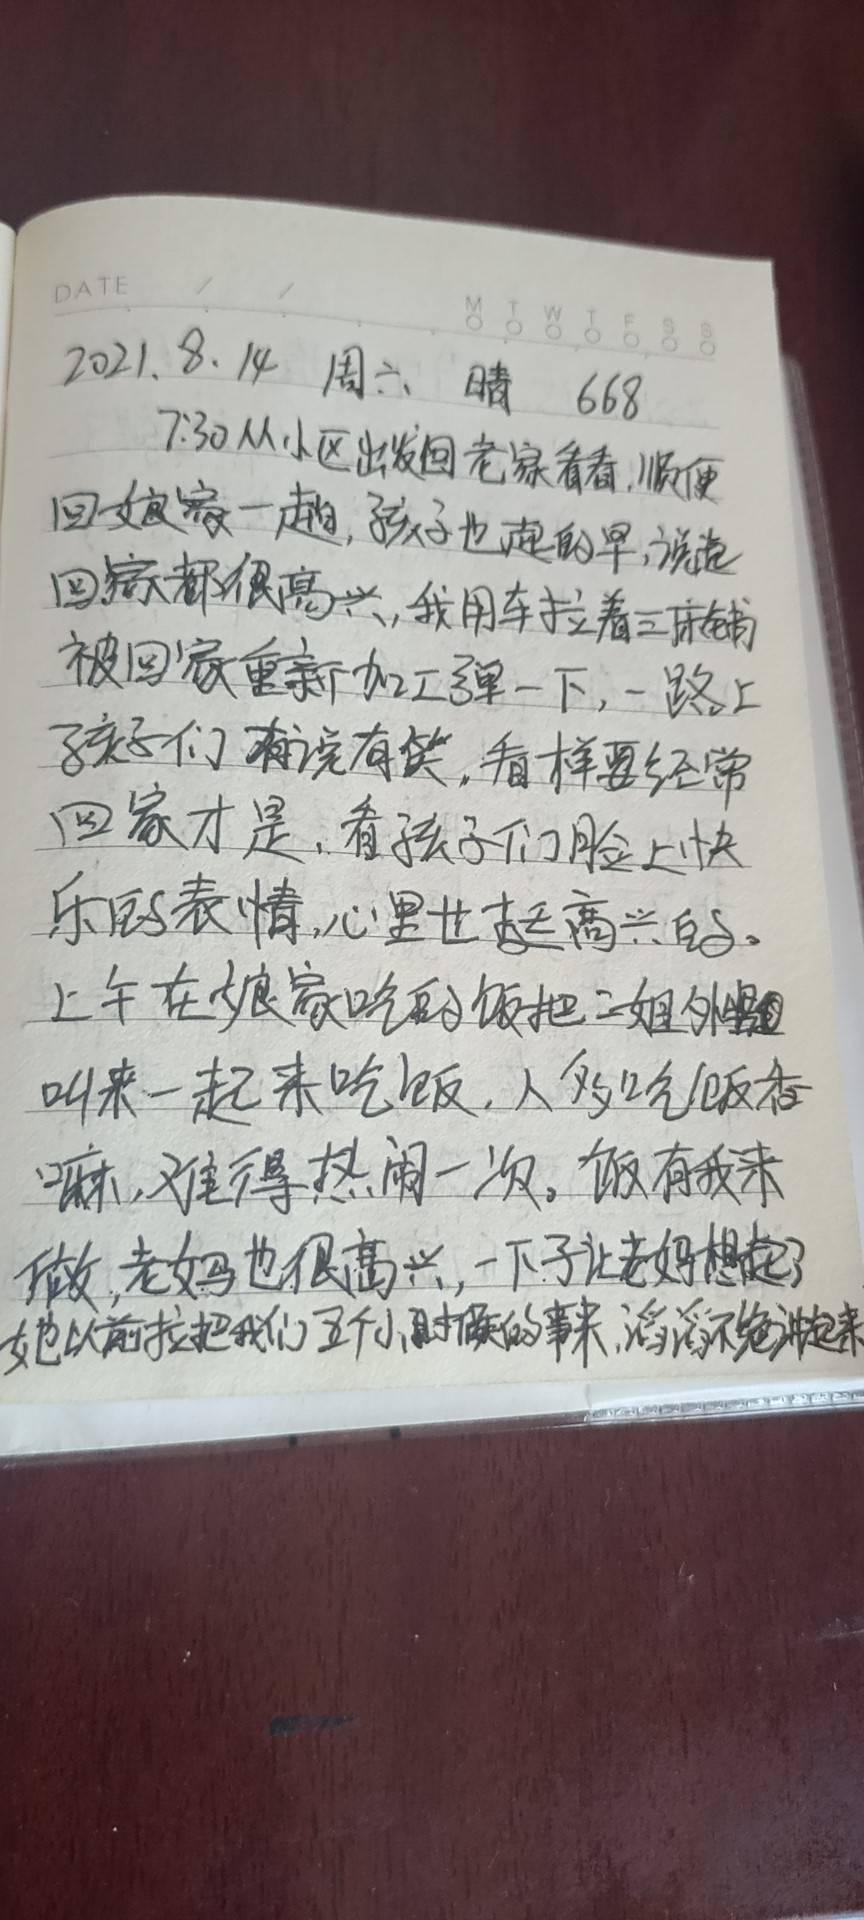 DATE / /
M T W T F S S
2021.8.14 周六 晴 668
7:30从小区出发回老家看看,顺便
回娘家一趟,孩子也起的早,说起
回家都很高兴,我用车拉着三床铺
被回家重新加工弹一下,一路上
孩子们有说有笑,看样要经常
回家才是,看孩子们脸上快
乐的表情,心里也挺高兴的。
上午在娘家吃的饭把二姐外甥
叫来一起来吃饭,人多吃饭香
嘛,难得热闹一次。饭有我来
做,老妈也很高兴,一下子让老妈想起了
她以前拉把我们五个小时候的事来,滔滔不绝讲起来